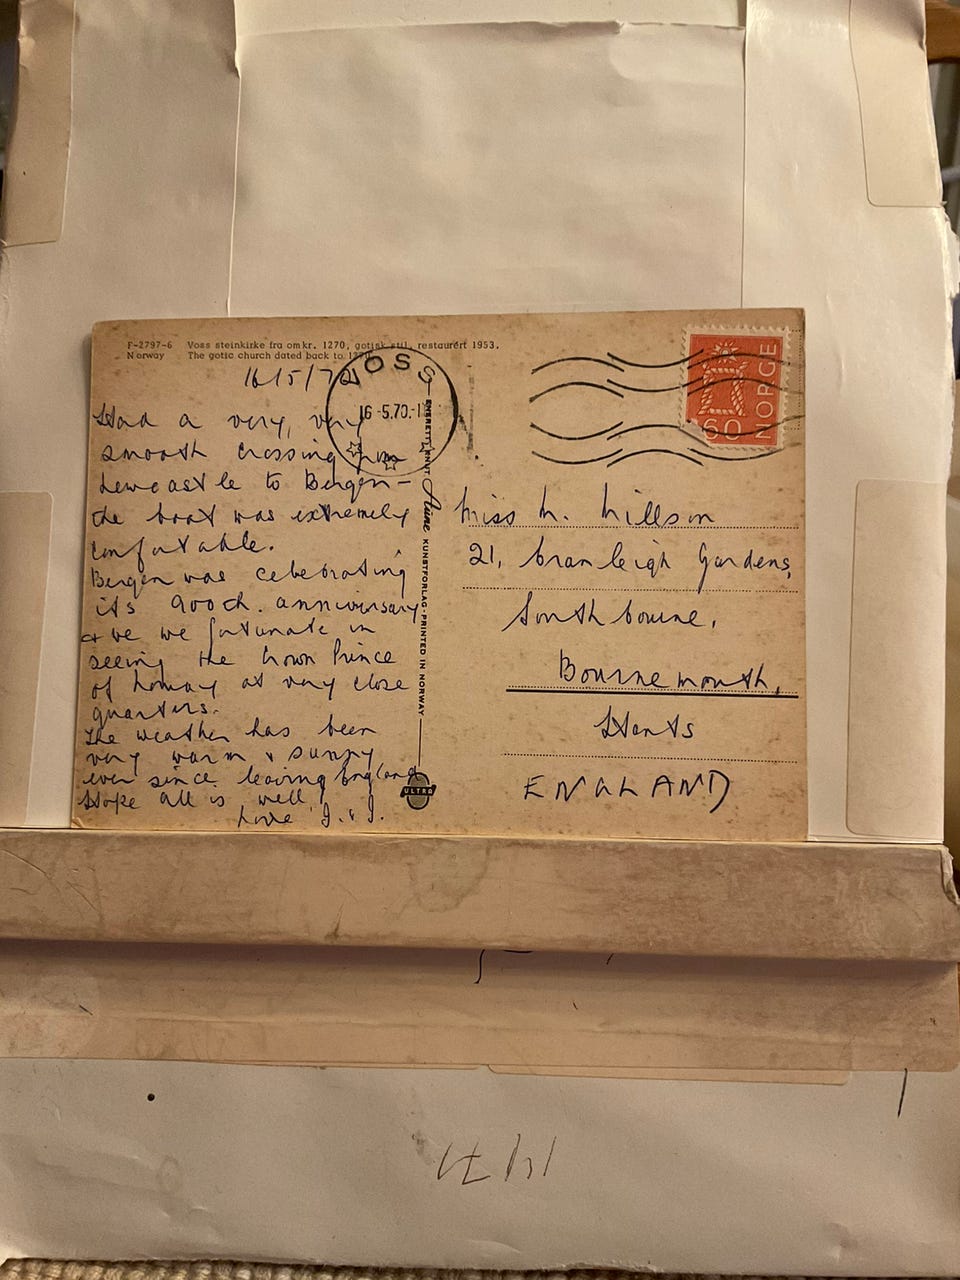 F-2797-6 Voss steinkirke fra omkr. 1270, gotisk stil, restaurert 1953.
Norway The gotic church dated back to 1270.
16/5/70
Had a very, very
smooth crossing from
Newcastle to Bergen –
the boat was extremely
comfortable.
Bergen was celebrating
its 900th. anniversary
& we we fortunate in
seeing the Crown Prince
of Norway at very close
quarters.
The weather has been
very warm & sunny
ever since leaving England
Hope all is well,
Love J. & J.
VOSS
16-5.70.-1
ENERETT: KNUT Aune KUNSTFORLAG · PRINTED IN NORWAY
ULTRA
60 NORGE
Miss M. Millson
21, Cranleigh Gardens,
Southbourne,
Bournemouth,
Hants
ENGLAND